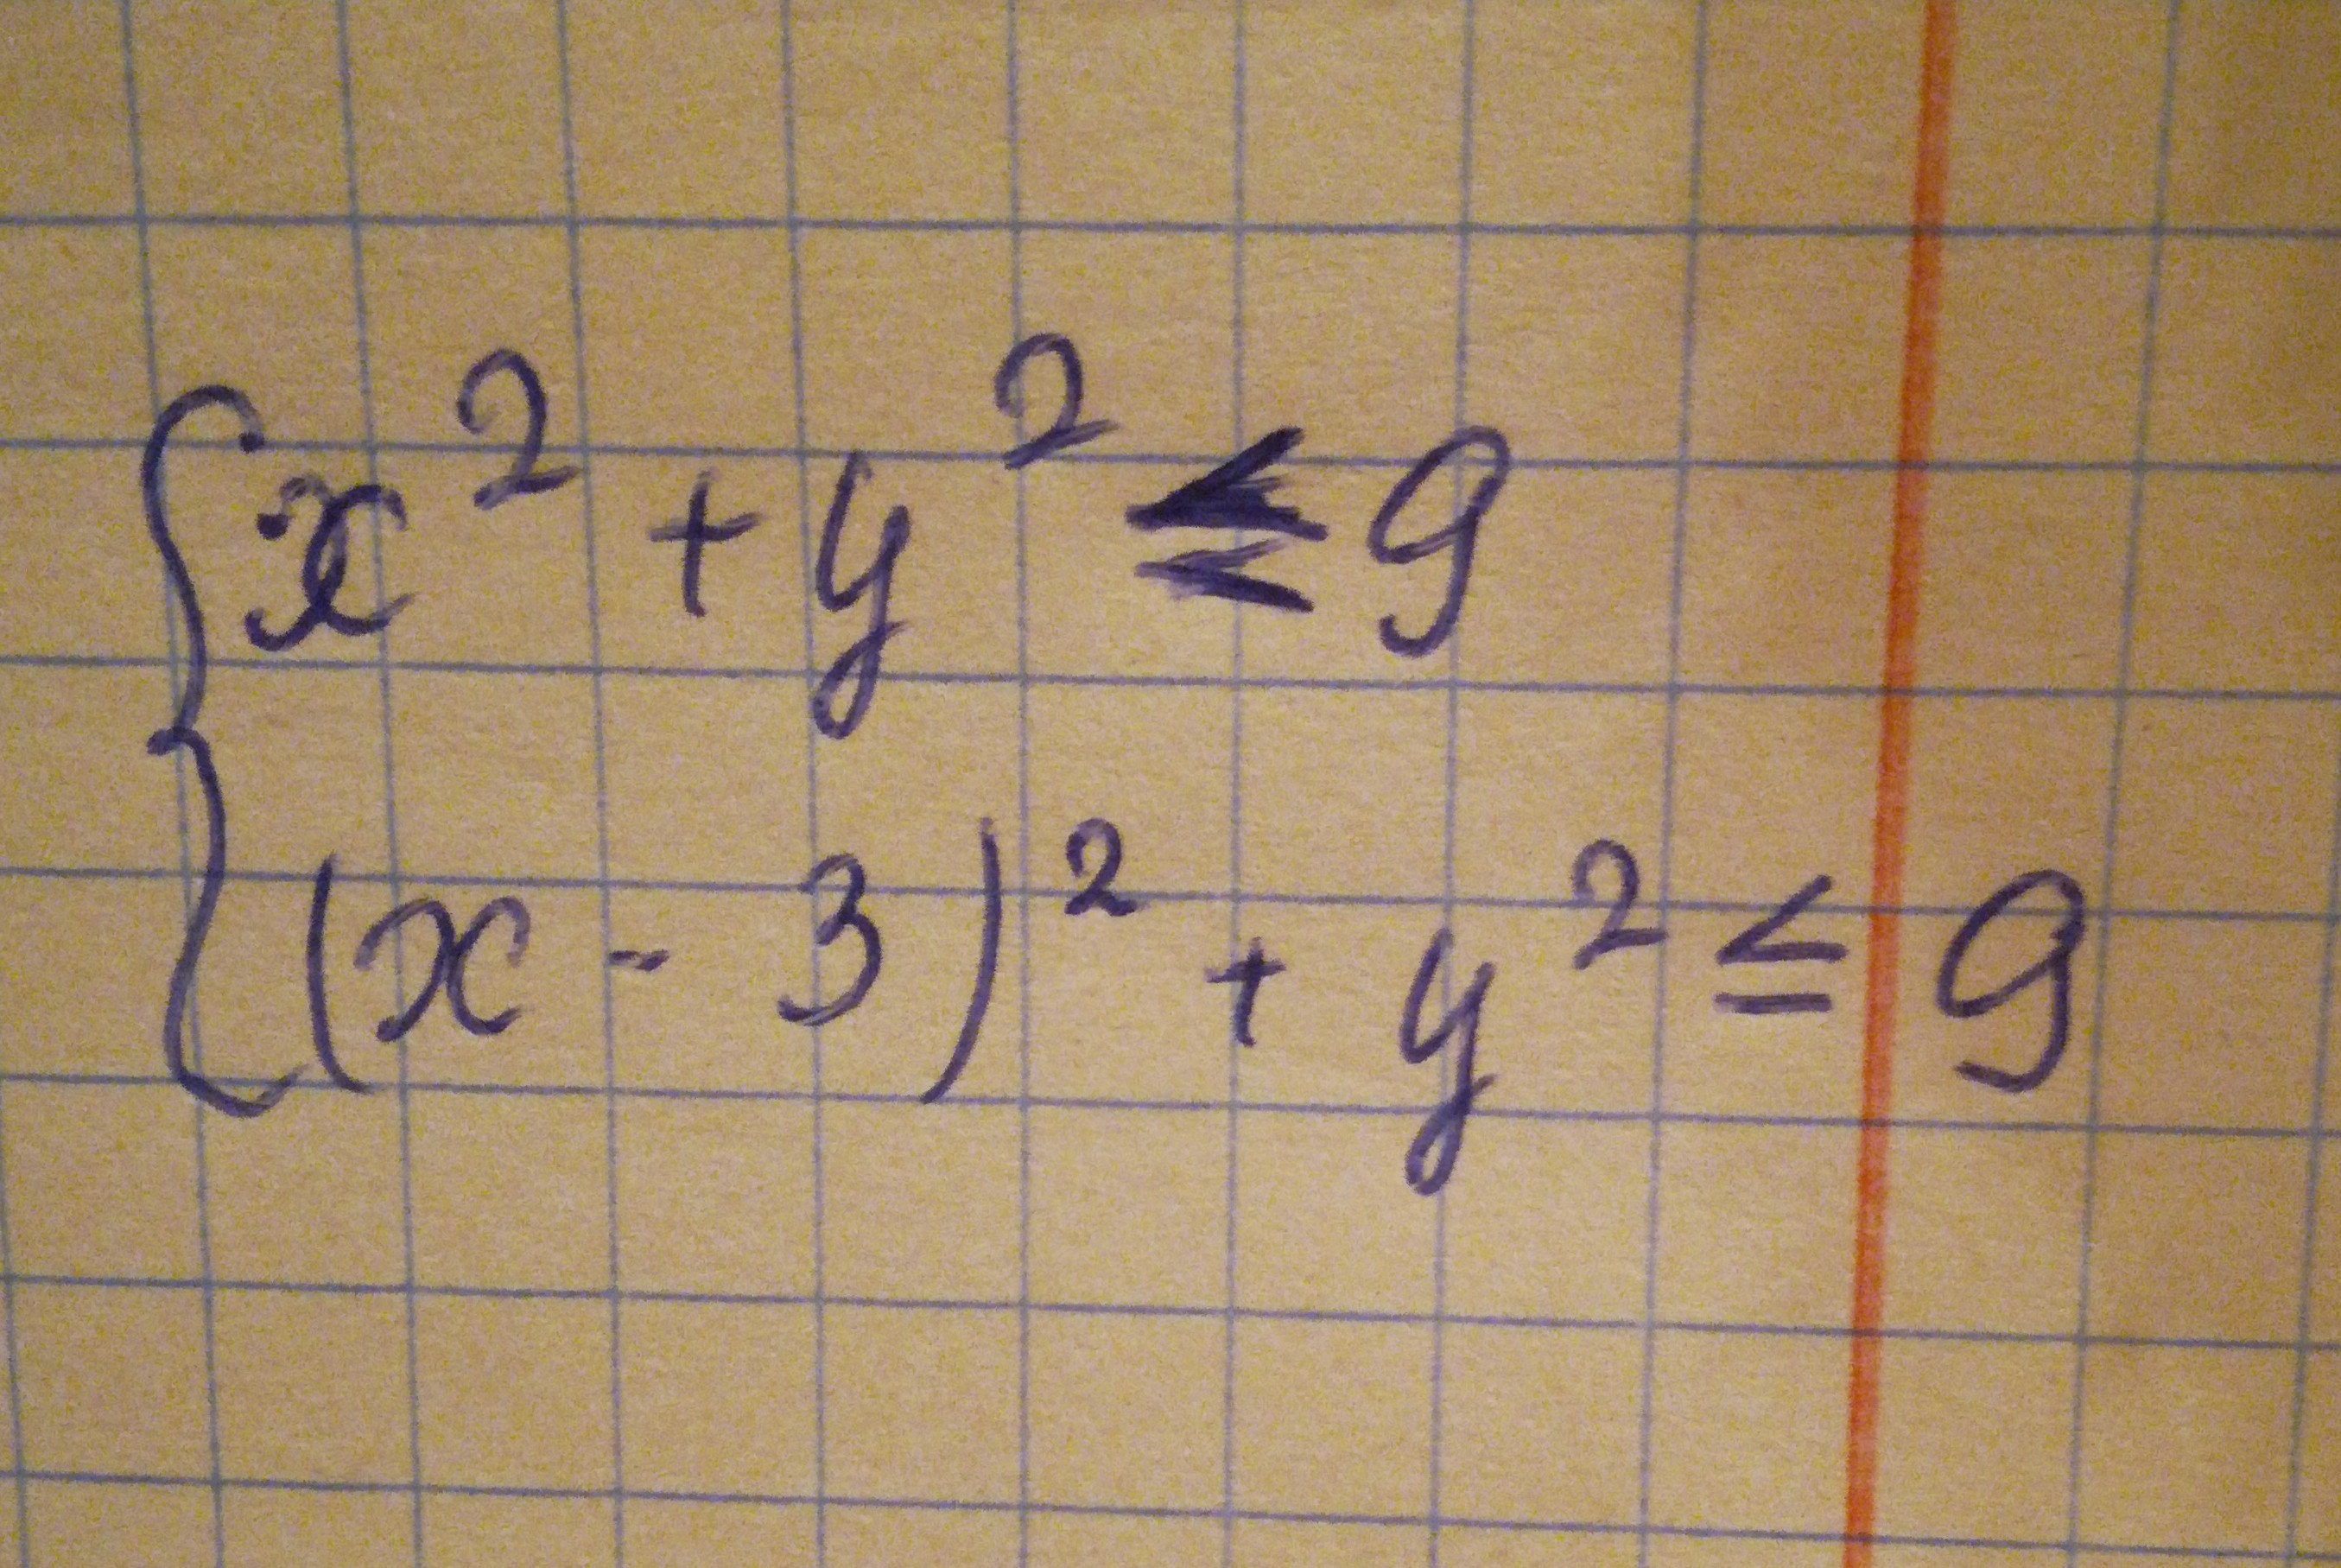 x² + y² ≤ 9
(x - 3)² + y² ≤ 9